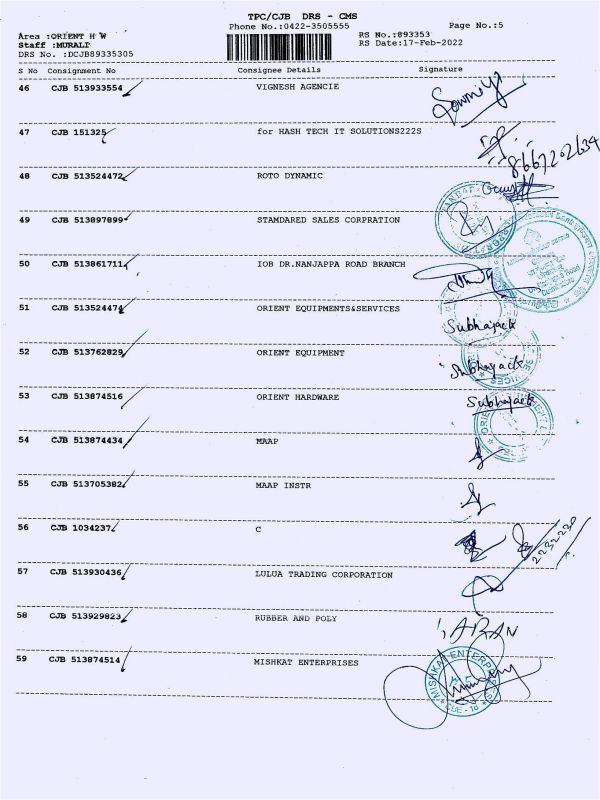 TPC/CJB DRS - CMS
Phone No.:0422-3505555
Page No.:5
Area :ORIENT H W
Staff :MURALI
DRS No. :DCJB89335305
RS No.:893353
RS Date:17-Feb-2022
S No Consignment No Consignee Details Signature
46 CJB 513933554 VIGNESH AGENCIE
47 CJB 151325 for HASH TECH IT SOLUTIONS222S
8667202634
48 CJB 513524472 ROTO DYNAMIC
49 CJB 513897899 STAMDARED SALES CORPRATION
50 CJB 513861711 IOB DR.NANJAPPA ROAD BRANCH
51 CJB 513524474 ORIENT EQUIPMENTS&SERVICES
Subhajack
52 CJB 513762829 ORIENT EQUIPMENT
Subhajack
53 CJB 513874516 ORIENT HARDWARE
Subhajack
54 CJB 513874434 MAAP
55 CJB 513705382 MAAP INSTR
56 CJB 1034237 C
2232230
57 CJB 513930436 LULUA TRADING CORPORATION
58 CJB 513929823 RUBBER AND POLY
SARAN
59 CJB 513874514 MISHKAT ENTERPRISES
MISHKAT ENTERPRISES
CBE - 18